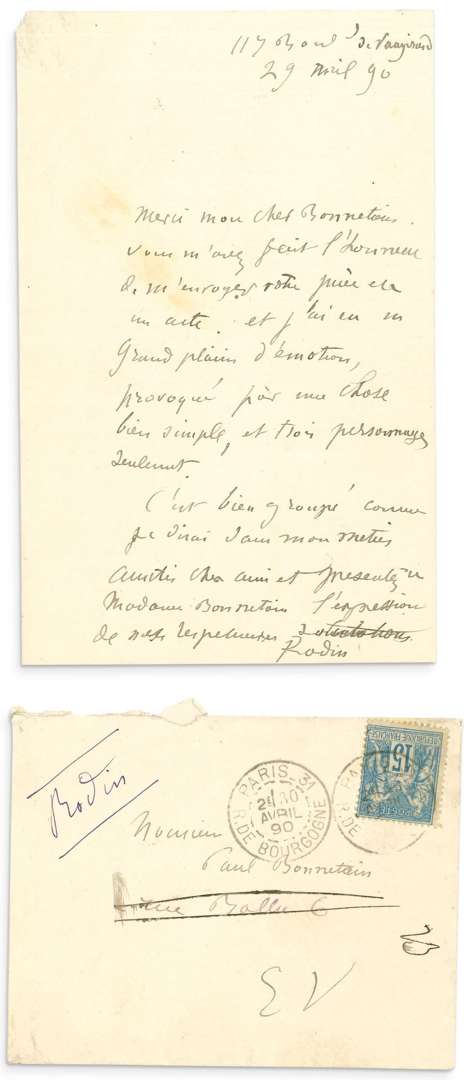 117 Boul d de Vaugirard
29 Avril 90
Merci mon cher Bonnetain.
vous m'avez fait l'honneur
de m'envoyer votre pièce en
un acte. et j'ai eu un
Grand plaisir d'émotion,
provoqué par une chose
bien simple, et trois personnages
seulement.
C'est bien groupé comme
je dirai dans mon métier
amitiés cher ami et presentez à
Madame Bonnetain l'expression
de mes respectueuses salutations
Rodin
Rodin
PARIS 31
AVRIL
90
R. DE BOURGOGNE
REPUBLIQUE FRANÇAISE
15
POSTE
PARIS
R. DE
Monsieur
Paul Bonnetain
rue Ballu 6
EV